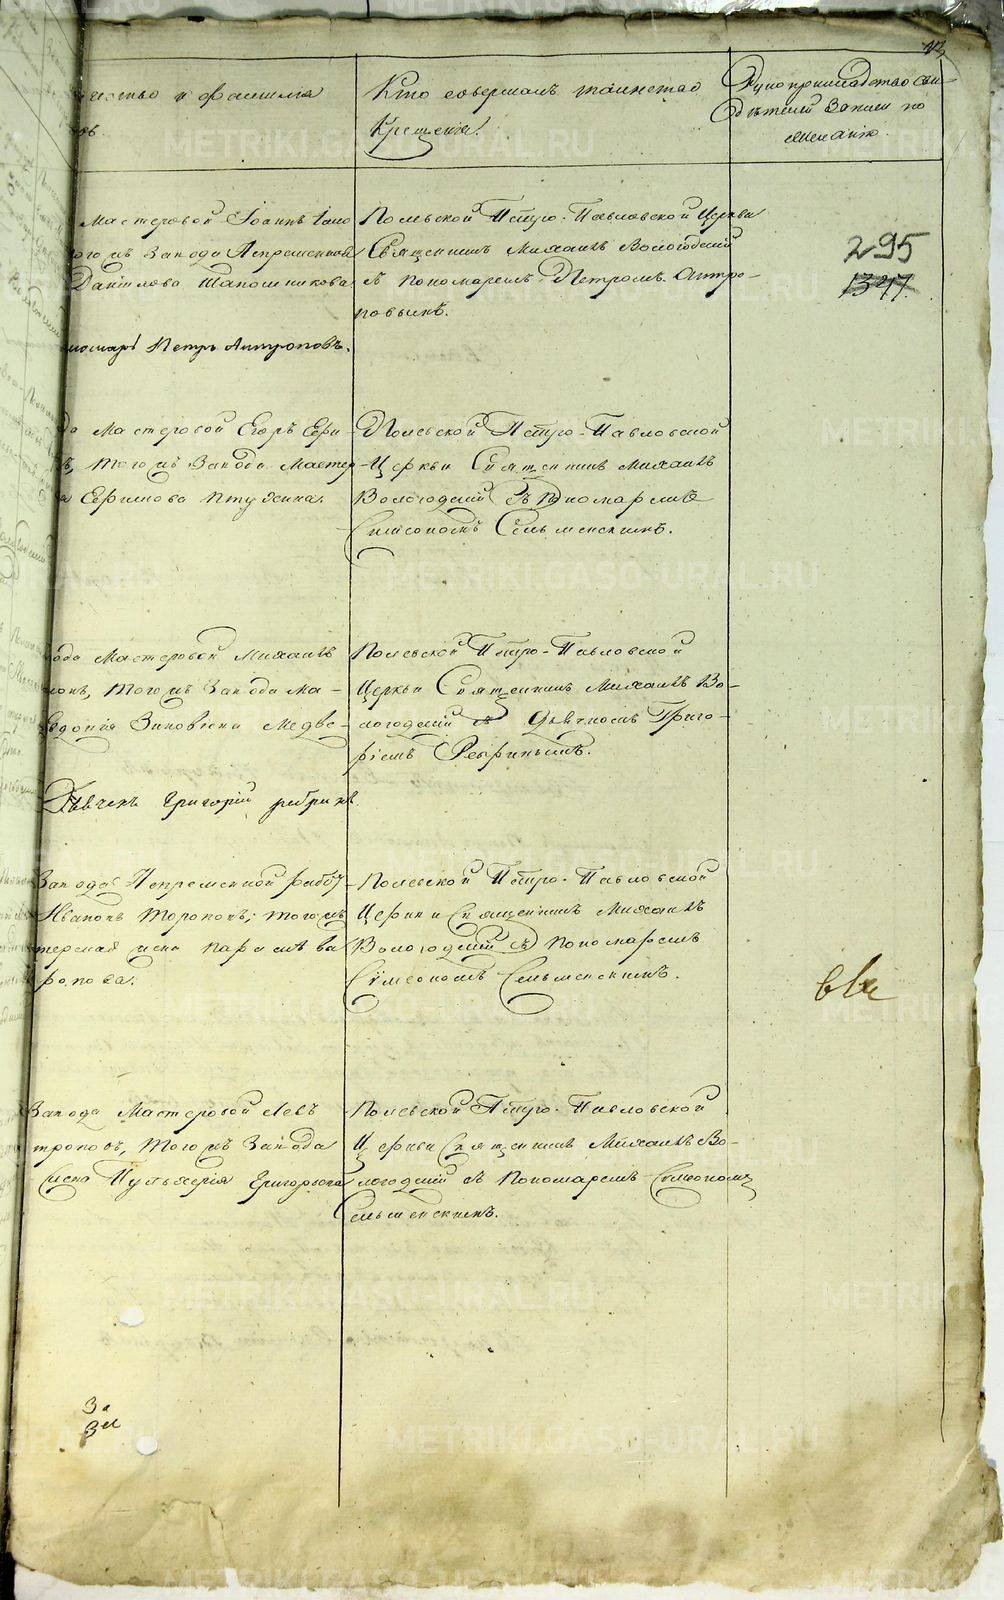 чество и фамилiя
овъ.
Кто совершалъ таинство
Крещенiя.
Рукоприкладство сви-
дѣтелей записи по
желанiю.
Мастеровой Iоаннъ Iако
тогожъ завода Непременной
Данiилова Шапошникова
номарь Петръ Антроповъ.
Полевской Петро-Павловской Церкви
Священникъ Михаилъ Вологодскiй
съ пономаремъ Петромъ Антро-
повымъ.
295
1347.
да Мастеровой Егоръ Ефи-
въ, тогожъ завода Мастер
а Ефимова Птухина.
Полевской Петро-Павловской
Церкви Священникъ Михаилъ
Вологодскiй съ пономаремъ
Симеономъ Сельменскимъ.
вода Мастеровой Михаилъ
тогожъ завода Ма-
Евдокiя Зиновiева Медве-
Дьячекъ Григорiй Ребринъ
Полевской Петро-Павловской
Церкви Священникъ Михаилъ Во-
логодскiй съ Дьячкомъ Григо-
рiемъ Ребринымъ.
Завода Непременной работ-
Ивановъ Тороповъ, тогожъ
терская жена Параскѣва
ропова.
Полевской Петро-Павловской
Церкви Священникъ Михаилъ
Вологодскiй съ пономаремъ
Сумеономъ Сельменскимъ.
Завода Мастеровой Левъ
троповъ, тогожъ завода
жена Пульхерiя Григорьева
Полевской Петро-Павловской
Церкви Священникъ Михаилъ Во-
логодскiй съ пономаремъ Симеономъ
Сельменскимъ.
METRIKI.GASO-URAL.RU